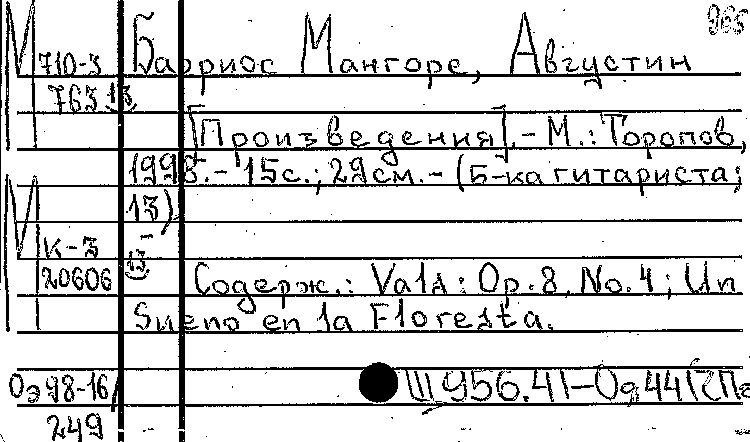 965
М 710-3 Барриос Мангоре, Августин
763 13
[Произведения].- М.: Торопов,
1998.- 15с.; 29см.- (Б-ка гитариста;
13)
М К-3
20606 (13)
Содерж.: Vals: Op.8, No.4; Un
Sueno en la Floresta.
Оэ98-16/
249
Щ956.41-Од44